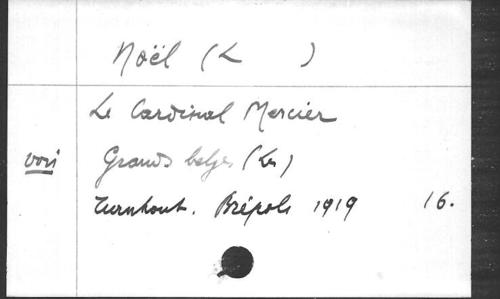 Noël (L )
Le Cardinal Mercier
voir Grands belges (Les)
Turnhout. Brépols 1919 16.